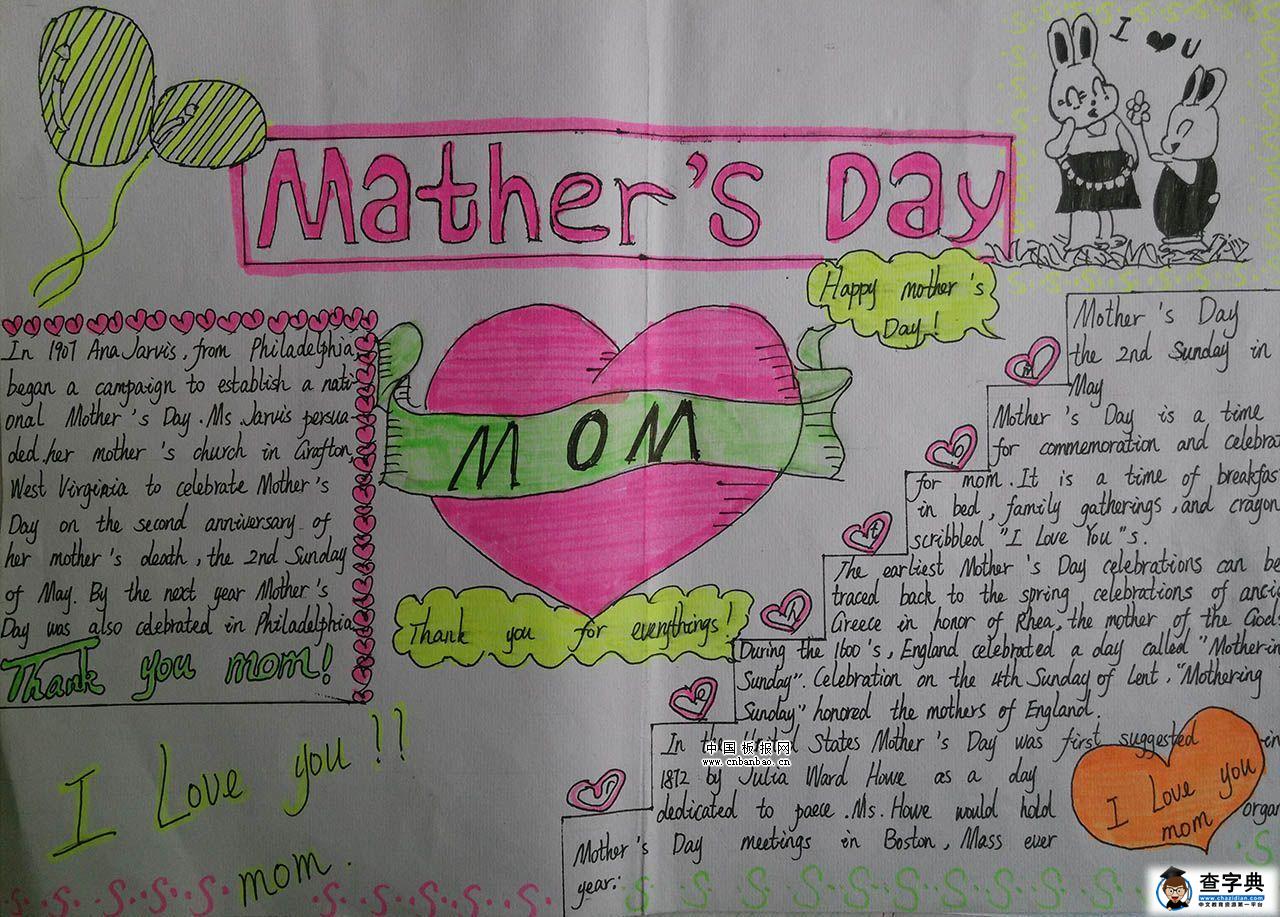 I ♥ U
Mather's Day
Happy mother's
Day!
In 1907 Ana Jarvis, from Philadelphia,
began a campaign to establish a nati-
onal Mother's Day. Ms. Jarvis persua-
ded her mother's church in Grafton,
West Virginia to celebrate Mother's
Day on the second anniversary of
her mother's death, the 2nd Sunday
of May. By the next year Mother's
Day was also celebrated in Philadelphia.
Thank you mom!
I Love you!!
mom.
MOM
Thank you for everythings!
Mother's Day
the 2nd Sunday in
May
Mother's Day is a time
for commemoration and celebra
for mom. It is a time of breakfas
in bed, family gatherings, and crayon
scribbled "I Love You"s.
The earliest Mother's Day celebrations can be
traced back to the spring celebrations of anci
Greece in honor of Rhea, the mother of the Gods
During the 1600's, England celebrated a day called "Mother-in
Sunday". Celebration on the 4th Sunday of Lent, "Mothering
Sunday" honored the mothers of England.
In the United States Mother's Day was first suggested in
1872 by Julia Ward Howe as a day
dedicated to paece. Ms. Howe would hold organ
Mother's Day meetings in Boston, Mass ever
year.
m
o
t
h
e
r
I Love you
mom
中国板报网
www.cnbanbao.cn
查字典
www.chazidian.com
中文教育资源第一平台